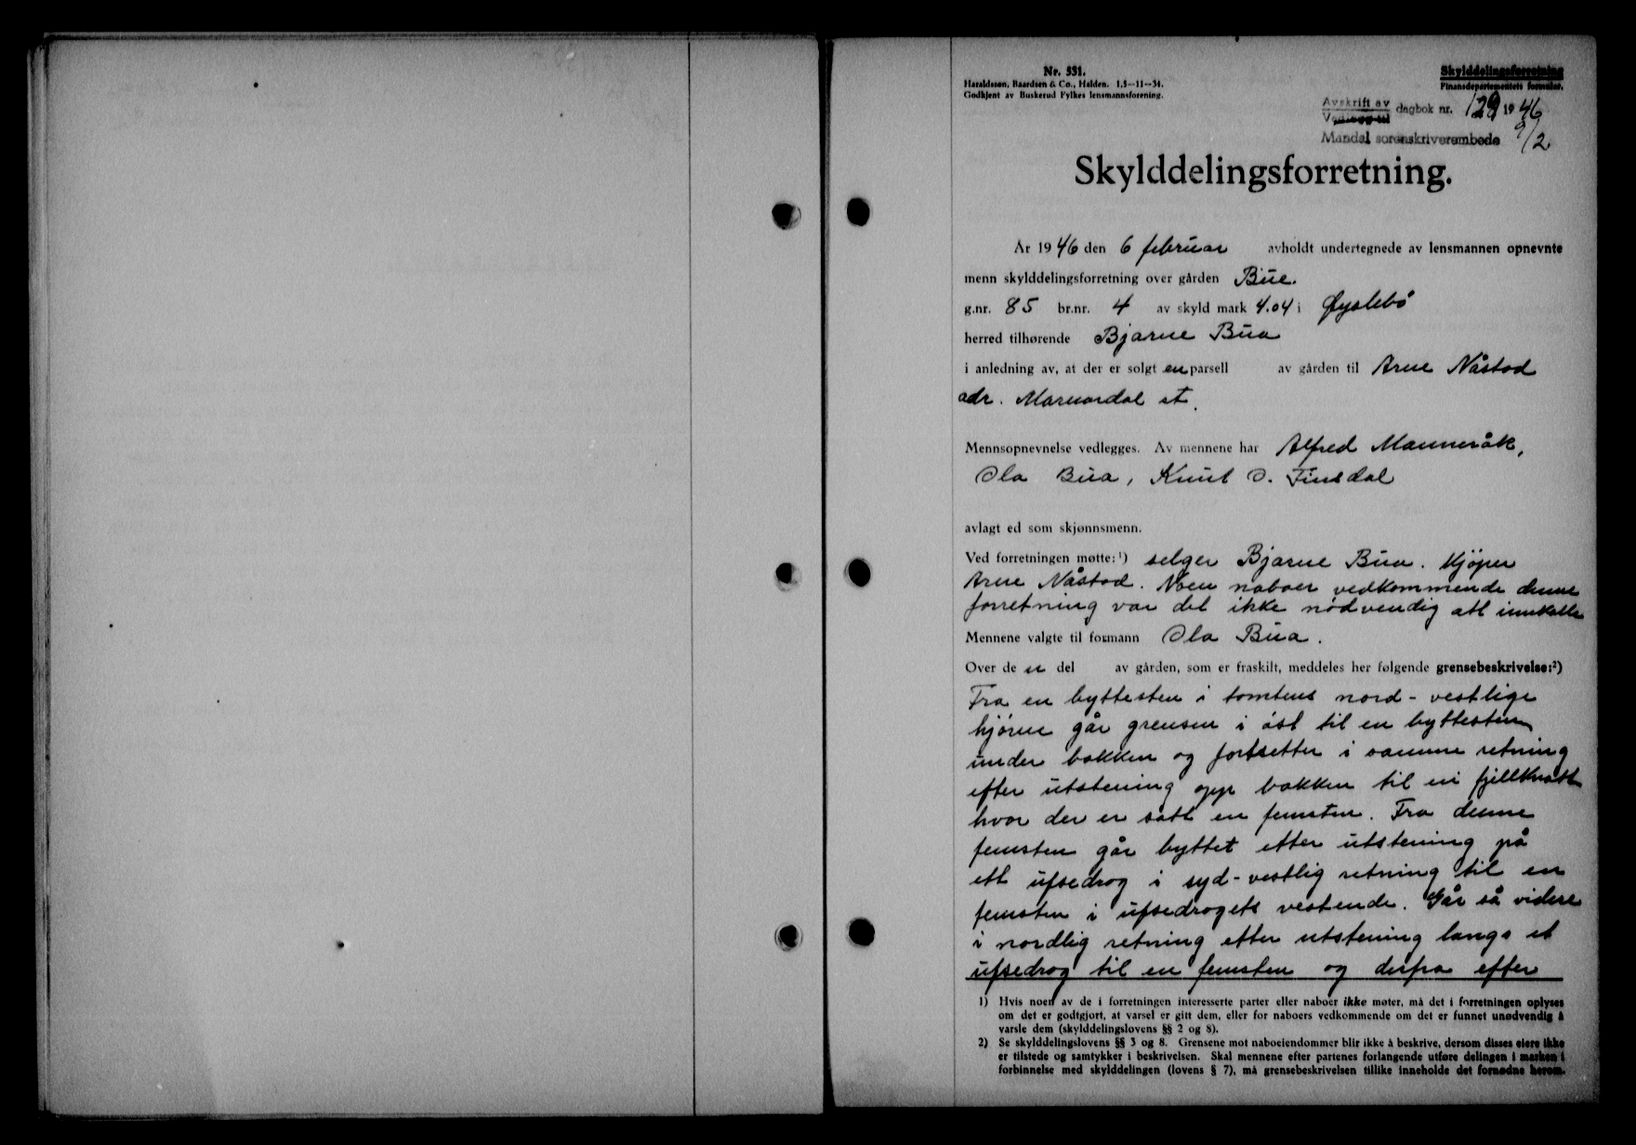 Nr. 531.
Haraldssen, Baardsen & Co., Halden. 1,5—11—34.
Godkjent av Buskerud Fylkes lensmannsforening.
Skylddelingsforretning
Finansdepartementets formular.
Avskrift av
Vedlegg til
dagbok nr. 129 1946
Mandal sorenskriverembede 9/2
Skylddelingsforretning.
År 1946 den 6 februar avholdt undertegnede av lensmannen opnevnte
menn skylddelingsforretning over gården Bue.
g.nr. 85 br.nr. 4 av skyld mark 4.04 i Øyslebö
herred tilhørende Bjarne Bua
i anledning av, at der er solgt en parsell av gården til Arne Nåstad
adr. Marnardal st.
Mennsopnevnelse vedlegges. Av mennene har Alfred Manneråk,
Ola Bua, Knut O. Finsdal
avlagt ed som skjønnsmenn.
Ved forretningen møtte:¹) selger Bjarne Bua. Kjöper
Arne Nåstad. Noen naboer vedkommende denne
forretning var det ikke nödvendig att innkalle
Mennene valgte til formann Ola Bua.
Over de n del av gården, som er fraskilt, meddeles her følgende grensebeskrivelse:²)
Fra en byttesten i tomtens nord-vestlige
hjörne går grensen i öst til en byttesten
under bakken og fortsetter i samme retning
efter utstening opp bakken til en fjellknatt
hvor der er satt en femsten. Fra denne
femsten går byttet etter utstening på
ett ufsedrag i syd-vestlig retning til en
femsten i ufsedragets vestende. Går så videre
i nordlig retning etter utstening langs et
ufsedrag til en femsten og derfra efter
1) Hvis noen av de i forretningen interesserte parter eller naboer ikke møter, må det i forretningen oplyses
om det er godtgjort, at varsel er gitt dem, eller for naboers vedkommende om det er funnet unødvendig å
varsle dem (skylddelingslovens §§ 2 og 8).
2) Se skylddelingslovens §§ 3 og 8. Grensene mot naboeiendommer blir ikke å beskrive, dersom disses eiere ikke
er tilstede og samtykker i beskrivelsen. Skal mennene efter partenes forlangende utføre delingen i marken i
forbinnelse med skylddelingen (lovens § 7), må grensebeskrivelsen tillike inneholde det fornødne herom.